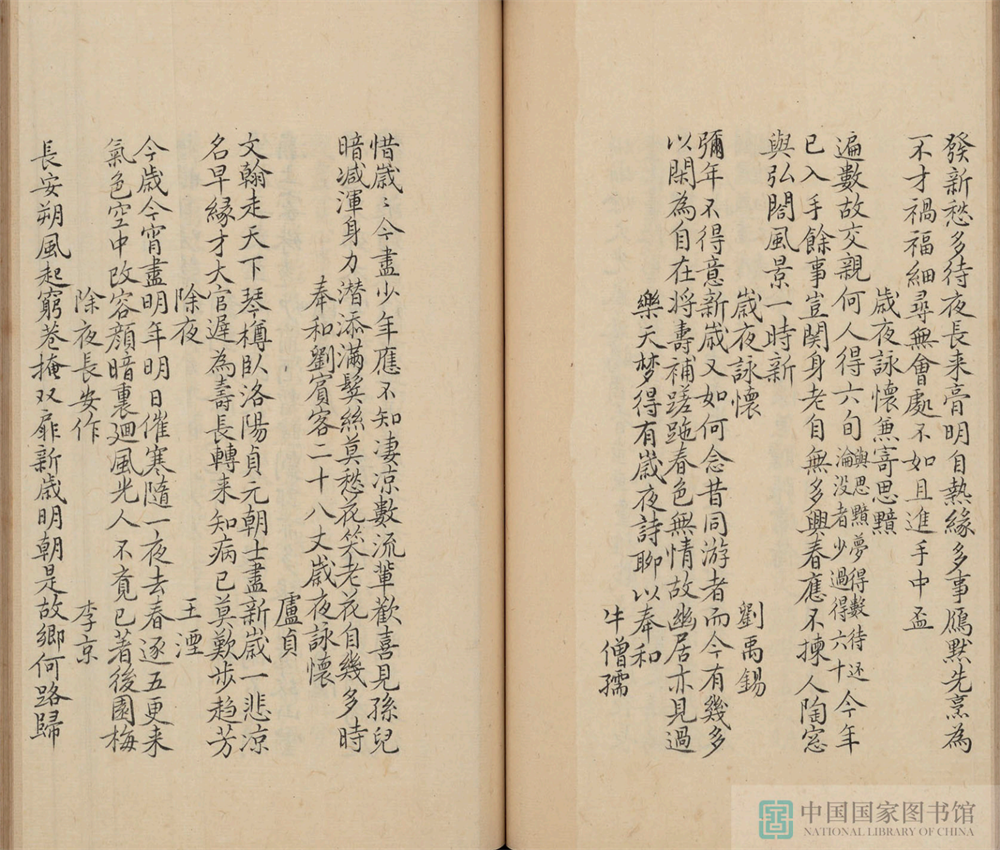 發新愁多待夜長来膏明自熱緣多事鴈默先烹為
不才禍福細尋無會處不如且進手中盃
歳夜詠懷兼寄思黯
遍數故交親何人得六旬與思黯夢得數待还淪没者少過得六十今年
已入手餘事豈関身老自無多興春應不揀人陶窓
與弘閤風景一時新
歳夜詠懷 劉禹錫
彌年不得意新歳又如何念昔同游者而今有幾多
以閑為自在将壽補蹉跎春色無情故幽居亦見過
樂天梦得有歳夜詩聊以奉和
牛僧孺
惜歳〻今盡少年應不知凄凉數流輩歡喜見孫兒
暗减渾身力潜添滿鬓絲莫愁花笑老花自幾多時
奉和劉賓客二十八丈歳夜詠懷
盧貞
文翰走天下琴樽臥洛陽貞元朝士盡新歳一悲凉
名早緣才大官遲為壽長轉来知病已莫歎步趋芳
除夜 王湮
今歳今宵盡明年明日催寒隨一夜去春逐五更来
氣色空中改容顔暗裏廻風光人不覔已著後園梅
除夜長安作 李京
長安朔風起窮巷掩双扉新歳明朝是故鄉何路歸
中国国家图书馆
NATIONAL LIBRARY OF CHINA